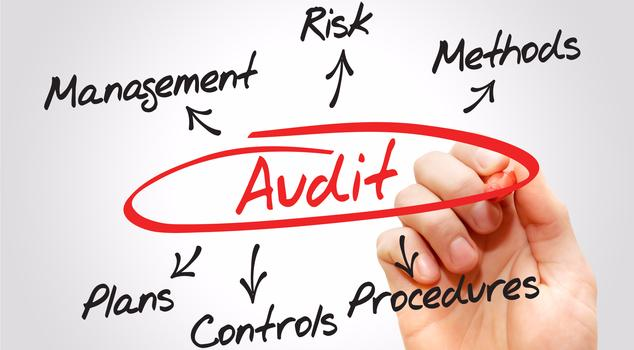 Risk
Management
Methods
Audit
Plans
Controls
Procedures